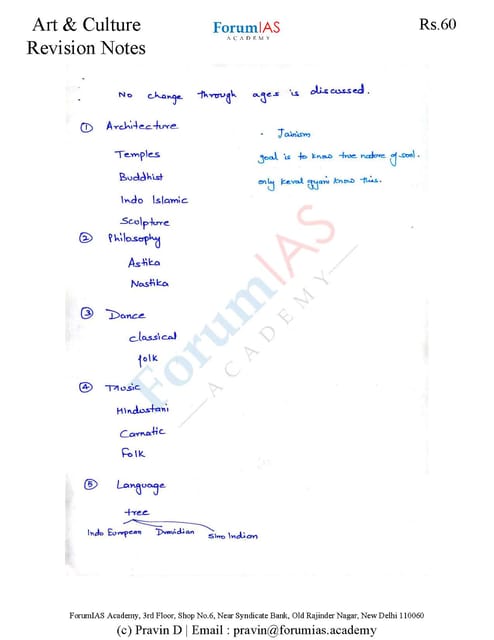 Art & Culture
Revision Notes
ForumIAS
ACADEMY
Rs.60
No change through ages is discussed.
① Architecture
Temples
Buddhist
Indo Islamic
Sculpture
· Jainism
goal is to know true nature of soul.
only keval gyani know this.
② Philosophy
Astika
Nastika
③ Dance
classical
folk
④ Music
Hindustani
Carnatic
Folk
⑤ Language
tree
Indo European Dravidian Sino Indian
ForumIAS
ACADEMY
ForumIAS Academy, 3rd Floor, Shop No.6, Near Syndicate Bank, Old Rajinder Nagar, New Delhi 110060
(c) Pravin D | Email : pravin@forumias.academy